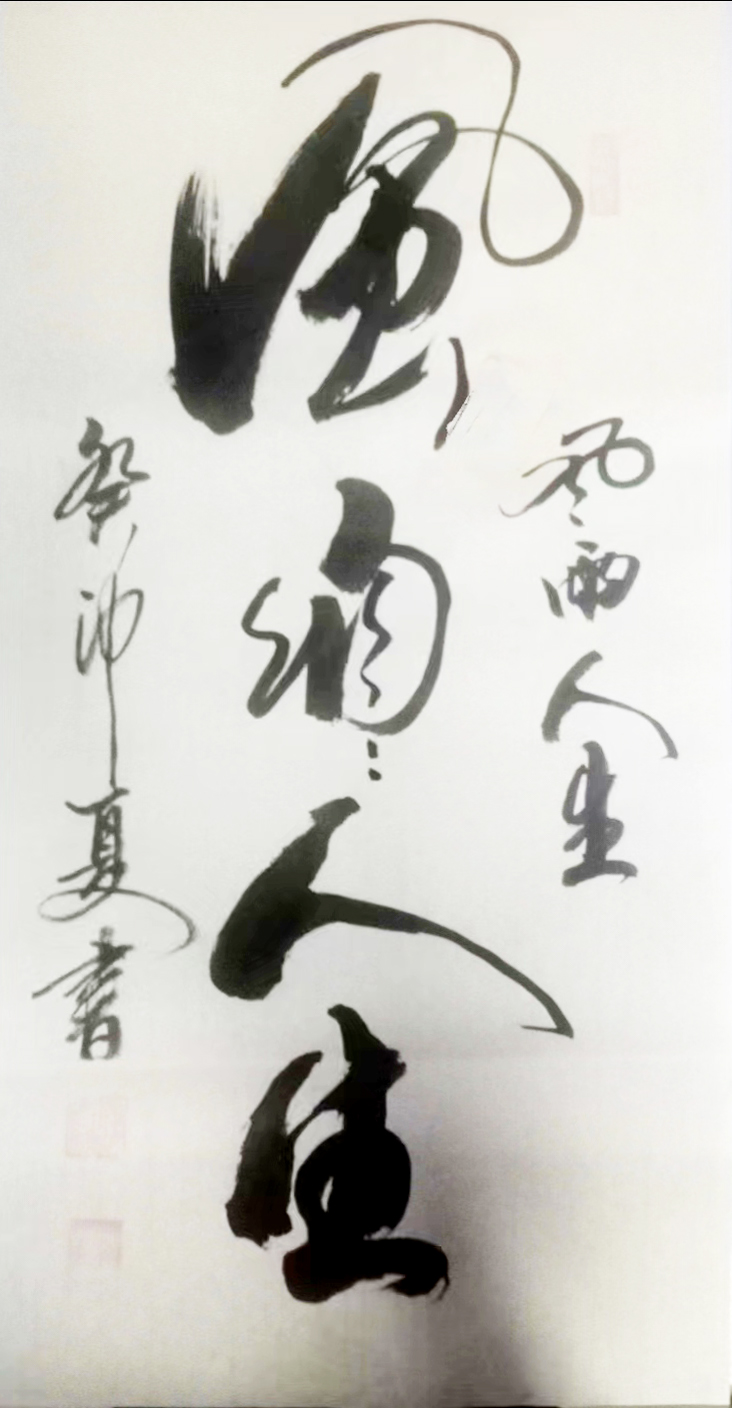 風雨人生
風雨人生
癸卯夏書